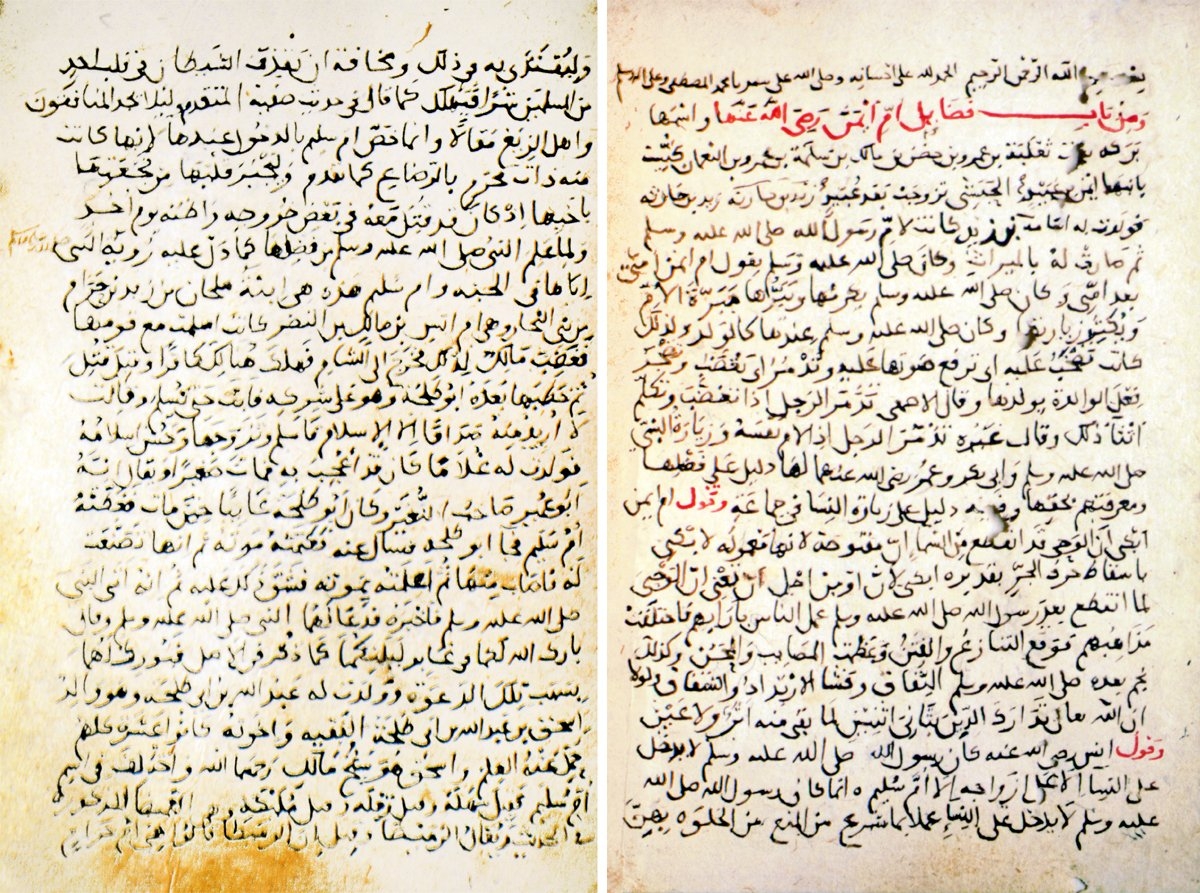 بسم الله الرحمن الرحيم الحمد لله على احسانه وصلى الله على سيدنا محمد المصطفى وعلى اله وسلم
ومن باب فضايل ام ايمن رضي الله عنها واسمها
بركة بنت ثعلبة بن عمرو بن حصن بن مالك بن سلمة بن عمرو بن النعمان كنيت
بابنها ايمن بن عبيد الحبشي تزوجت بعد عبيد زيد بن حارثة
فولدت له اسامة كانت لام رسول الله صلى الله عليه وسلم
ثم صارت له بالميراث وكان صلى الله عليه وسلم يقول ام ايمن امي
بعد امي وكان صلى الله عليه وسلم يكرمها ويبرها مبرة الام
ويكثر زيارتها وكان صلى الله عليه وسلم عندها كالولد ولذلك
كانت تصخب عليه اي ترفع صوتها عليه وتذمر اي تغضب وتضجر
فعل الوالدة بولدها وقال الاصمعي تذمر الرجل اذا تغضب وتكلم
اثناء ذلك وقال غيره تذمر الرجل اذا لام نفسه وزيارة النبي
صلى الله عليه وسلم وابي بكر وعمر رضي الله عنهما لها دليل على فضلها
ومعرفتهم بحقها وفيه دليل على زيارة النسا في جماعة وقول ام ايمن
ابكي ان الوحي قد انقطع من السما ان مفتوحة لانها معمولة لابكي
باسقاط حرف الجر تقديره ابكي لان او من اجل ان يعني ان الوحي
لما انقطع بعد رسول الله صلى الله عليه وسلم عمل الناس بارايهم فاختلفت
مذاهبهم فوقع التنازع والفتن وعظمت المصايب والمحن وكذلك
نجم بعده صلى الله عليه وسلم النفاق وفشا الارتداد والشقاق ولولا
ان الله تعالى تدارك الدين بثاني اثنين لما بقي منه اثر ولا عين
وقول انس رضي الله عنه كان رسول الله صلى الله عليه وسلم لا يدخل
على النسا الا على ازواجه الا ام سليم انما كان رسول الله صلى الله
عليه وسلم لا يدخل على النساء عملا بما شرع من المنع من الخلوة بهن
وليقتدى به في ذلك ومخافة ان يقذف الشيطان في قلب احد
من المسلمين شرا فيهلك كما قال في حديث صفية المتقدم لئلا يجد المنافقون
واهل الزيغ مقالا وانما خص ام سليم بالدخول عندها لانها كانت
منه ذات محرم بالرضاع كما تقدم وليجبر قلبها من فجعتها
باخيها اذ كان قد قتل معه في بعض حروبه واظنه يوم احد
ولما علم النبي صلى الله عليه وسلم من فضلها كما دل عليه رؤية النبي
اياها في الجنة وام سليم هذه هي ابنة ملحان بن زيد بن حرام
من بني النجار وهي ام انس بن مالك بن النضر كانت اسلمت مع قومها
فغضب مالك لذلك فخرج الى الشام فهلك هنالك كافرا وقيل قتل
ثم خطبها بعده ابو طلحة وهو على شركه فابت حتى يسلم وقالت
لا اريد منه صداقا الا الاسلام فاسلم وتزوجها وحسن اسلامه
فولدت له غلاما كان قد اعجب به فمات صغيرا ويقال انه
ابو عمير صاحب النغير وكان ابو طلحة غايبا حين مات فغطته
ام سليم فجا ابو طلحة فسال عنه فكتمته موته ثم انها تصنعت
له فاصاب منها ثم اعلمته بموته فشق ذلك عليه ثم انه اتى النبي
صلى الله عليه وسلم فاخبره فدعا لهما النبي صلى الله عليه وسلم وقال
بارك الله لكما في غابر ليلتكما كما ذكر في الاصل فبورك لهما
بسبب تلك الدعوة وولدت له عبد الله بن ابي طلحة وهو والد
اسحق بن عبد الله بن ابي طلحة الفقيه واخوته كانوا عشرة كلهم
حمل عنه العلم واسحق هو شيخ مالك رحمهما الله واختلف في اسم
ام سليم فقيل سهلة وقيل رميلة وقيل مليكة وهي الغميصا المذكورة
في الحديث ويقال الرميصا وقيل ان الرميصا